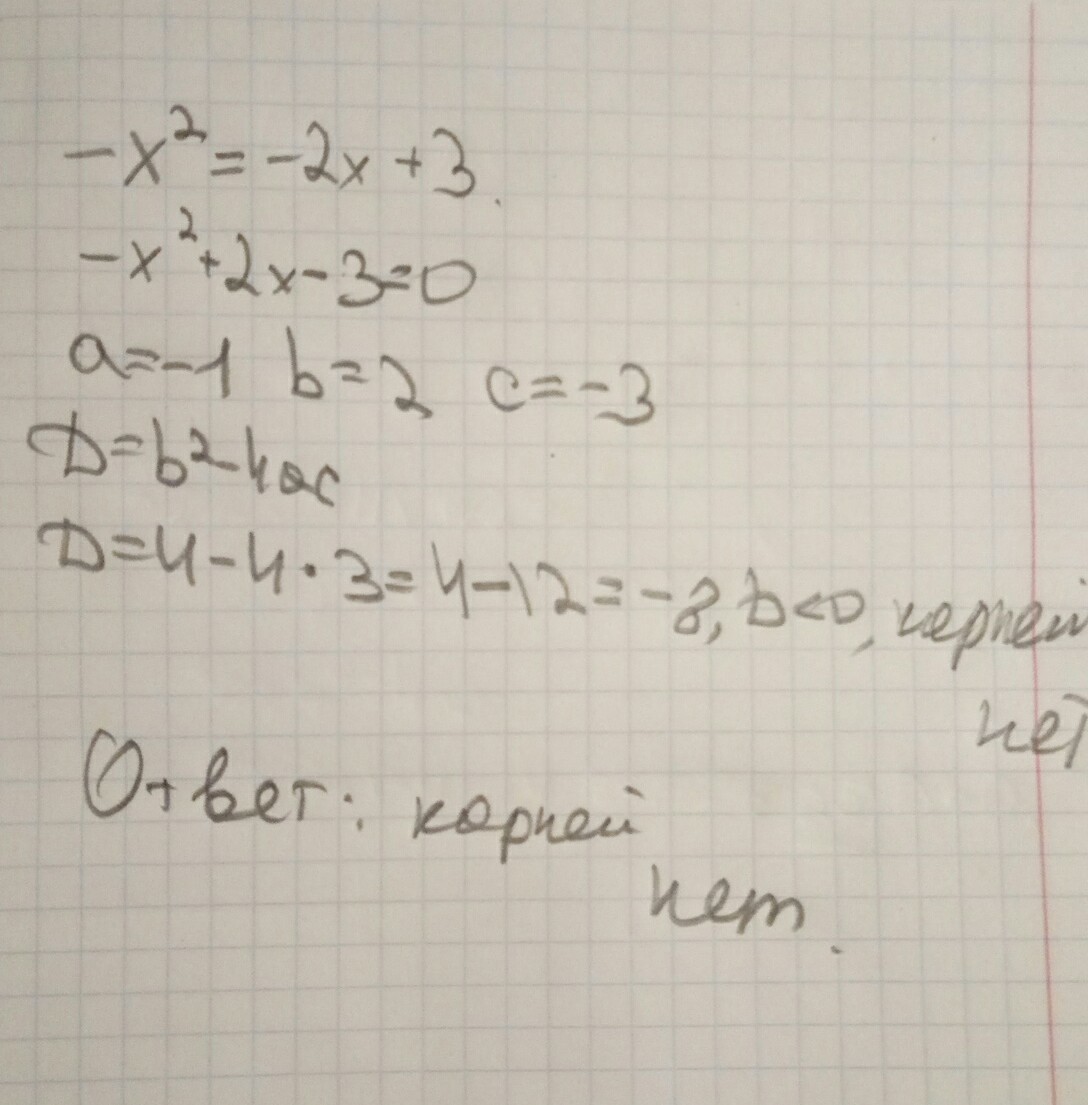 -x² = -2x + 3.
-x² + 2x - 3 = 0
a = -1 b = 2 c = -3
D = b² - 4ac
D = 4 - 4 · 3 = 4 - 12 = -8, D < 0, корней
нет
Ответ: корней
нет.